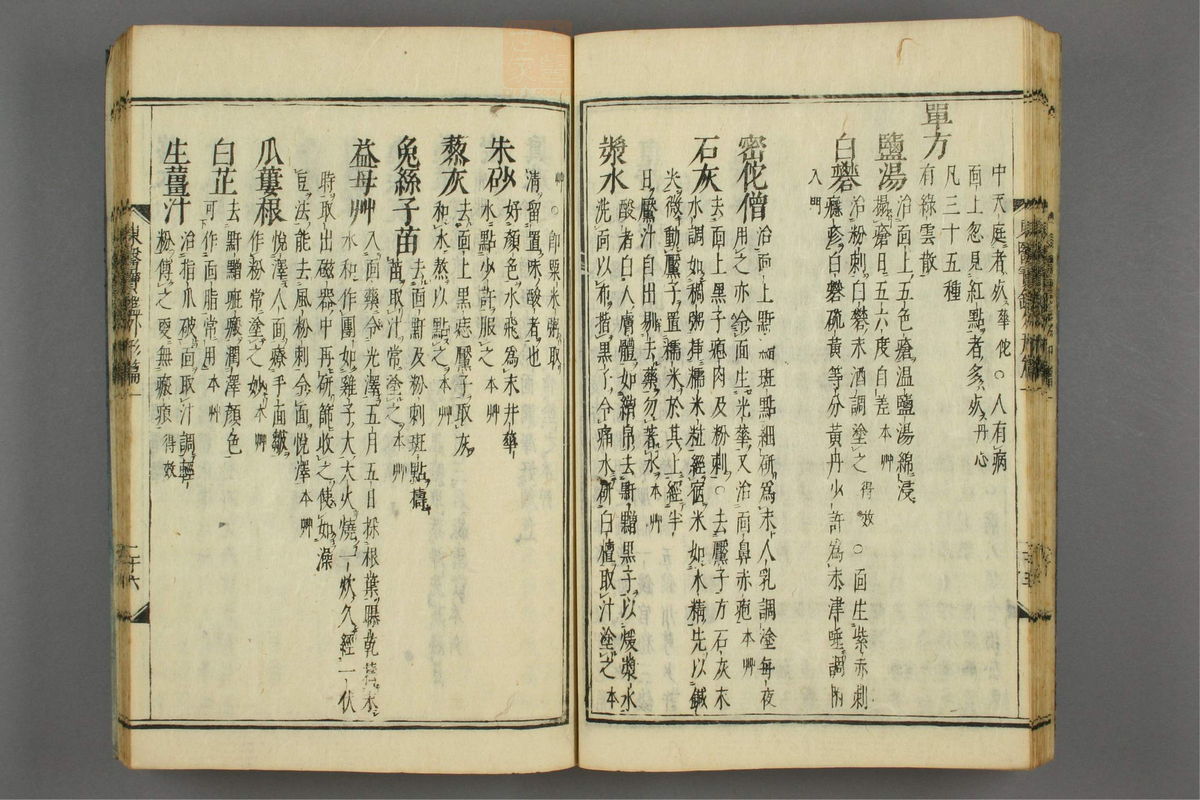 中天庭者疢華佗○人有病
面上忽見紅點者多疢丹心
單方
凡三十五種
有綠雲散
鹽湯
治面上五色瘡溫鹽湯綿浸
搨瘡日五六度自差本艸
白礬
治粉刺白礬末酒調塗之得效○面生紫赤刺
癮疹白礬硫黃等分黃丹少許爲末津唾調付
入門
密佗僧
治面上䵟 斑點細硏爲末人乳調塗每夜
用之亦令面生光華又治面鼻赤疱本艸
石灰
去面上黑子瘜肉及粉刺○去黶子方石灰末
水調如稠粥揷糯米粒經宿米如水精先以鍼
微動黶子置糯米於其上經半
日黶汁自出剔去藥勿著水本艸
漿水
酸者白人膚體如繒帛去䵟䵳黑子以煖漿水
洗面以布揩黑子令痛水硏白檀取汁塗之本
艸○卽粟米粥取
淸留置味酸者也
朱砂
好顏色水飛爲末井華
水點少許服之本艸
藜灰
去面上黑痣黶子取灰
和水熬以點之本艸
兔絲子苗
去面䵟及粉刺斑點擣
苗取汁常塗之本艸
益母艸
入面藥令光澤五月五日採根葉曝乾擣末
水和作團如雞子大大火燒一炊久經一伏
時取出磁器中再硏篩收之使如澡
豆法能去風粉刺令面悅澤本艸
瓜蔞根
悅澤人面療手面皺
作粉常塗之妙本艸
白芷
去䵟䵳斑瘢潤澤顏色
可作面脂常用本艸
生薑汁
治指爪破面取汁調輕
粉傅之更無瘢痕得效
東醫寶鑑外形篇一
二十六